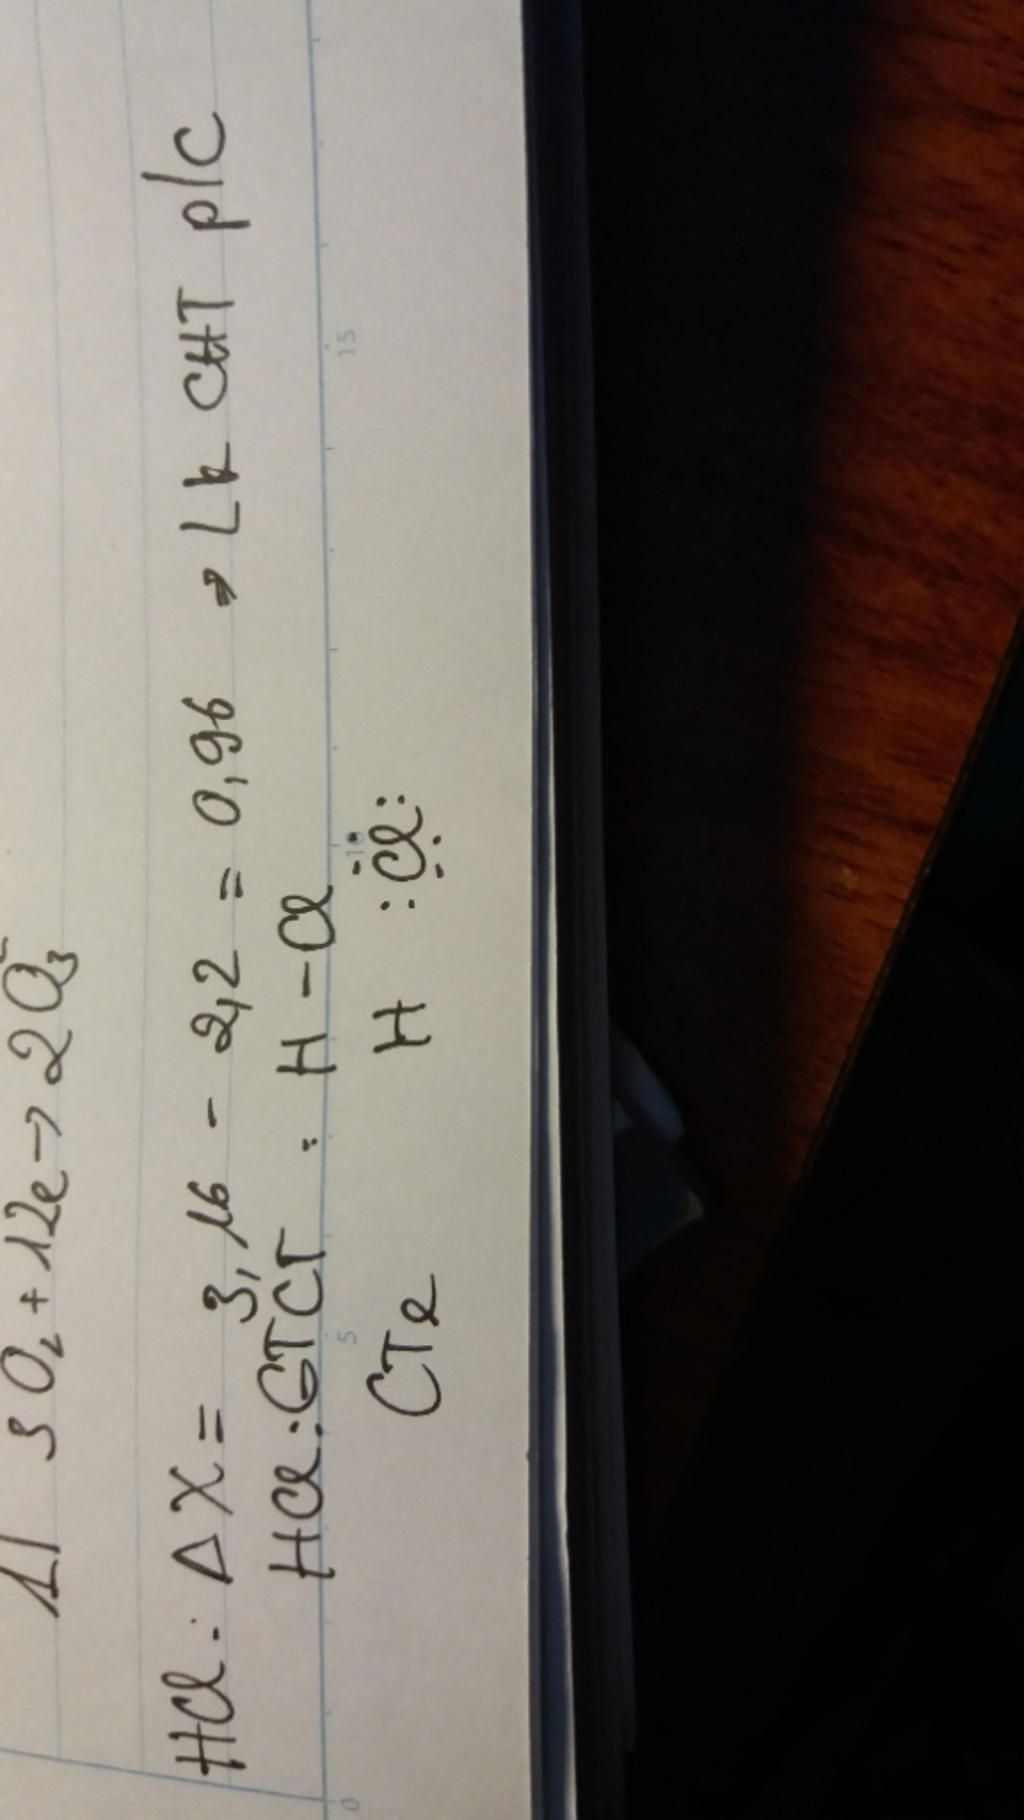 3O₂ + 12e → 2O₃
HCl: ΔX = 3,16 - 2,2 = 0,96 → Lk CHT p/c
HCl: CTCT : H - Cl
CTe H :Cl:
0 5 10 15